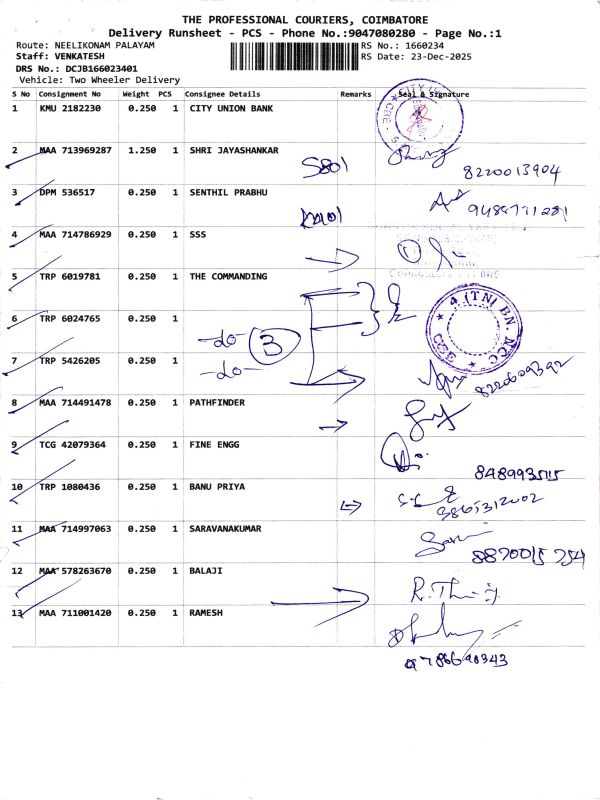 THE PROFESSIONAL COURIERS, COIMBATORE
Delivery Runsheet - PCS - Phone No.:9047080280 - Page No.:1
Route: NEELIKONAM PALAYAM
RS No.: 1660234
Staff: VENKATESH
RS Date: 23-Dec-2025
DRS No.: DCJB166023401
Vehicle: Two Wheeler Delivery
S No Consignment No Weight PCS Consignee Details Remarks Seal & Signature
1 KMU 2182230 0.250 1 CITY UNION BANK
2 MAA 713969287 1.250 1 SHRI JAYASHANKAR
5801 8220013904
3 DPM 536517 0.250 1 SENTHIL PRABHU
9488771281
4 MAA 714786929 0.250 1 SSS
5 TRP 6019781 0.250 1 THE COMMANDING
6 TRP 6024765 0.250 1
-do- 3
4 (TN) BN. NCC CBE
7 TRP 5426205 0.250 1
-do- 8220609392
8 MAA 714491478 0.250 1 PATHFINDER
9 TCG 42079364 0.250 1 FINE ENGG
848993515
10 TRP 1080436 0.250 1 BANU PRIYA
9865312002
11 MAA 714997063 0.250 1 SARAVANAKUMAR
8870015754
12 MAA 578263670 0.250 1 BALAJI
13 MAA 711001420 0.250 1 RAMESH
9786690343